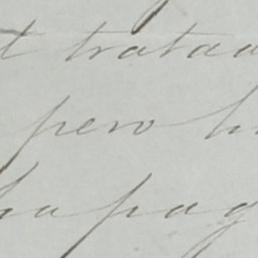 tratad
pero h
ha pag